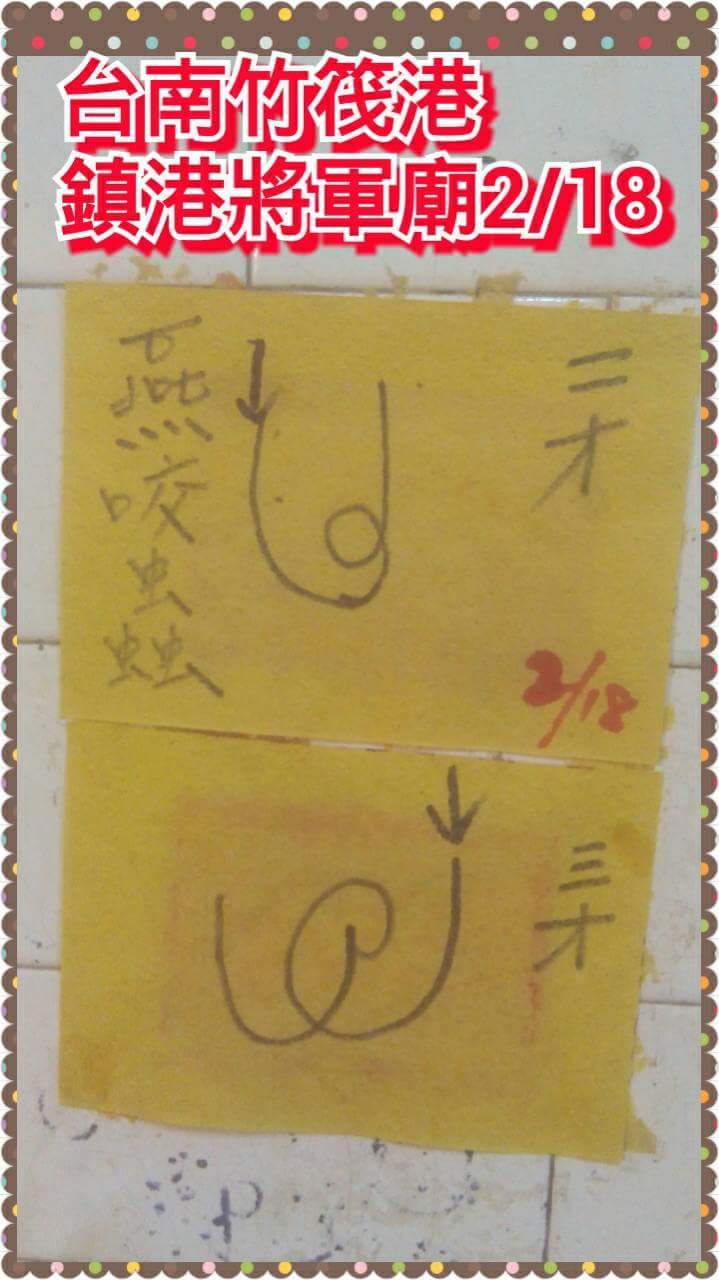 台南竹筏港
鎮港將軍廟2/18
二才
燕咬蟲
2/18
三才